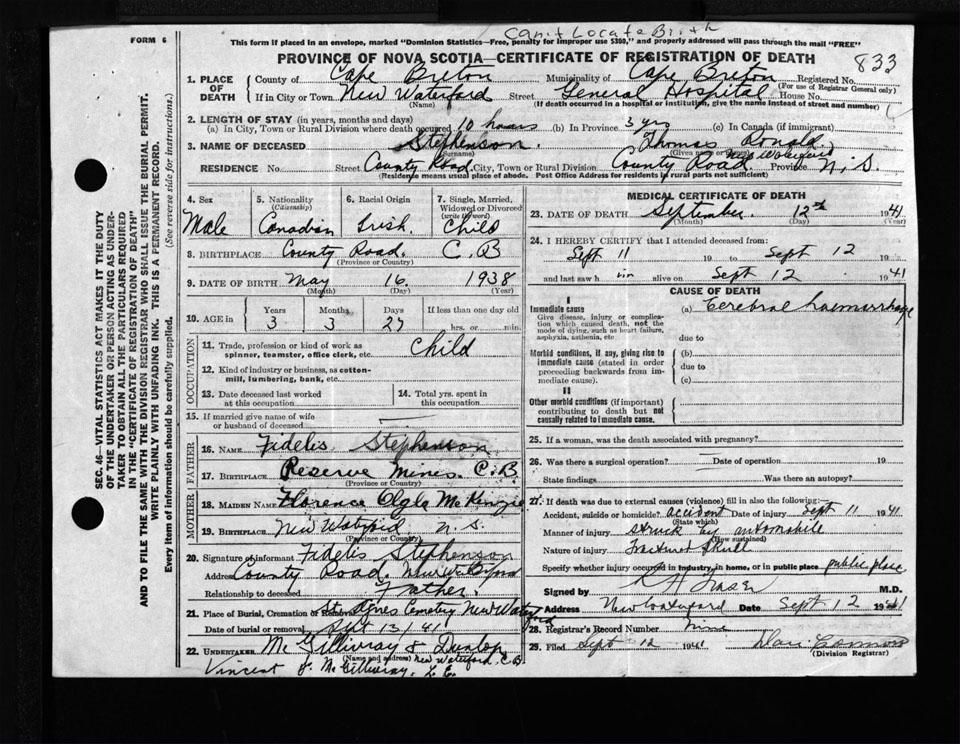 Can't Locate Birth
FORM 6
This form if placed in an envelope, marked "Dominion Statistics—Free, penalty for improper use $300," and properly addressed will pass through the mail "FREE"
PROVINCE OF NOVA SCOTIA—CERTIFICATE OF REGISTRATION OF DEATH
833
1. PLACE OF DEATH
County of Cape Breton Municipality of Cape Breton Registered No.
(For use of Registrar General only)
If in City or Town New Waterford Street General Hospital House No.
(Name) (If death occurred in a hospital or institution, give the name instead of street and number)
2. LENGTH OF STAY (in years, months and days)
(a) In City, Town or Rural Division where death occurred 10 hours (b) In Province 3 yrs (c) In Canada (if immigrant)
3. NAME OF DECEASED Stephenson. Thomas Ronald.
(Surname) (Given names)
RESIDENCE No. Street County Road. City, Town or Rural Division County Road. New Waterford Province N. S.
(Residence means usual place of abode. Post Office Address for residents of rural parts not sufficient)
4. Sex Male
5. Nationality (Citizenship) Canadian
6. Racial Origin Irish.
7. Single, Married, Widowed or Divorced (write the word) Child
8. BIRTHPLACE County Road. C. B
(Province or Country)
9. DATE OF BIRTH May 16. 1938
(Month) (Day) (Year)
10. AGE in Years 3 Months 3 Days 27 If less than one day old hrs. or min.
OCCUPATION
11. Trade, profession or kind of work as spinner, teamster, office clerk, etc. Child
12. Kind of industry or business, as cotton-mill, lumbering, bank, etc.
13. Date deceased last worked at this occupation
14. Total yrs. spent in this occupation
15. If married give name of wife or husband of deceased
FATHER
16. NAME Fidelis Stephenson
17. BIRTHPLACE Reserve Mines. C. B.
(Province or Country)
MOTHER
18. MAIDEN NAME Florence Olga McKenzie
19. BIRTHPLACE New Waterford N. S.
(Province or Country)
20. Signature of informant Fidelis Stephenson
Address County Road. New Waterford
Relationship to deceased Father.
21. Place of Burial, Cremation or Removal St Agnes Cemetry New Waterford
Date of burial or removal Sept 13/41
22. UNDERTAKER McGillivray & Dunlop
(Name and address) New Waterford, C B
Vincent J. McGillivray, L. E.
MEDICAL CERTIFICATE OF DEATH
23. DATE OF DEATH September. 12th 1941
(Month) (Day) (Year)
24. I HEREBY CERTIFY that I attended deceased from:
Sept 11 19 to Sept 12 19
and last saw h im alive on Sept 12 1941
CAUSE OF DEATH
I
Immediate cause
Give disease, injury or complication which caused death, not the mode of dying, such as heart failure, asphyxia, asthenia, etc.
(a) Cerebral haemorrhage
due to
Morbid conditions, if any, giving rise to immediate cause (stated in order preceeding backwards from immediate cause).
(b)
due to
(c)
II
Other morbid conditions (if important) contributing to death but not causally related to immediate cause.
25. If a woman, was the death associated with pregnancy?
26. Was there a surgical operation? Date of operation 19
State findings Was there an autopsy?
27. If death was due to external causes (violence) fill in also the following:
Accident, suicide or homicide? accident Date of injury Sept 11 1941
(State which)
Manner of injury struck by automobile
(How sustained)
Nature of injury fractured Skull
Specify whether injury occurred in industry, in home, or in public place public place
Signed by M.D.
Address New Waterford Date Sept 12 1941
28. Registrar's Record Number nine
29. Filed Sept 12 1941
(Division Registrar)
SEC. 46—VITAL STATISTICS ACT MAKES IT THE DUTY OF THE UNDERTAKER OR PERSON ACTING AS UNDERTAKER TO OBTAIN ALL THE PARTICULARS REQUIRED IN THE "CERTIFICATE OF REGISTRATION OF DEATH"
AND TO FILE THE SAME WITH THE DIVISION REGISTRAR WHO SHALL ISSUE THE BURIAL PERMIT.
WRITE PLAINLY WITH UNFADING INK. THIS IS A PERMANENT RECORD.
Every item of information should be carefully supplied. (See reverse side for instructions.)